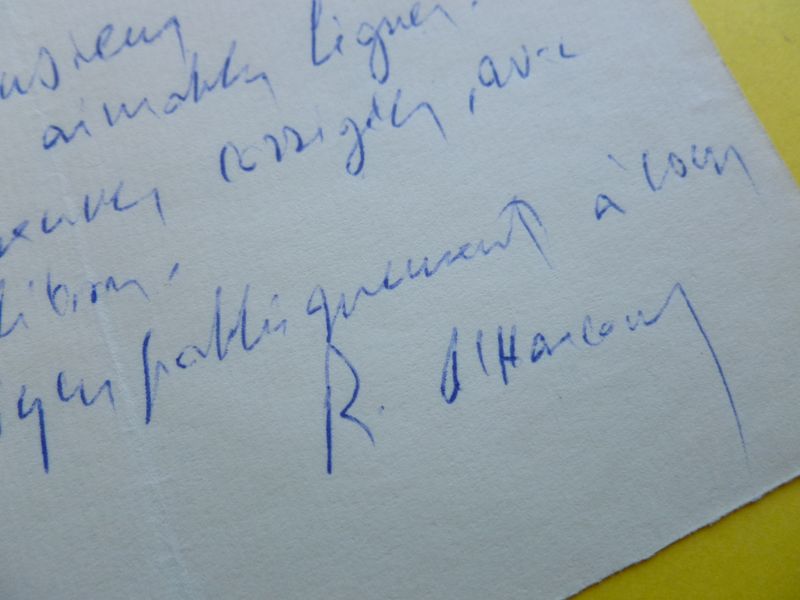 aimables lignes.
corrigées, avec
sympathiquement à vous
R. d'Harcourt